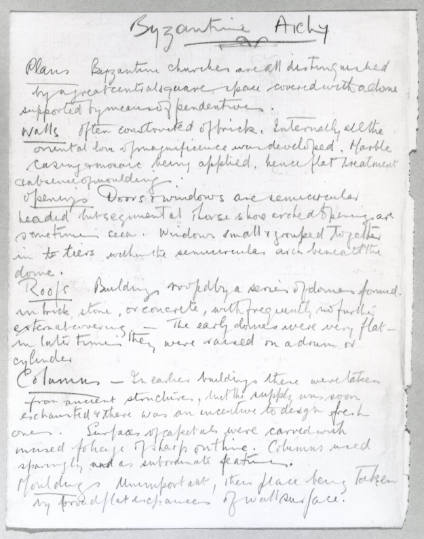 Byzantine Archy
Plans Byzantine churches are all distinguished
by a great central square space covered with a dome
supported by means of pendentives.
Walls Often constructed of brick. Internally, all the
oriental love of magnificence was developed. Marble
casing & mosaic being applied, hence flat treatment
& absence of moulding.
Openings Doors & windows are semicircular
headed but segmental & horse shoe arched openings are
sometimes seen. Windows small & grouped together
in to tiers within the semicircular arch beneath the
dome.
Roofs Buildings roofed by a series of domes formed
in brick, stone, or concrete, with frequently no further
external covering — The early domes were very flat —
in later times they were raised on a drum or
cylinder
Columns — In earlier buildings these were taken
from ancient structures, but the supply was soon
exhausted & there was an incentive to design fresh
ones. Surfaces of capitals were carved with
incised foliage of sharp outline. Columns used
sparingly and as subordinate features.
Mouldings Unimportant, their place being taken
by broad flat expanses of wall surface.